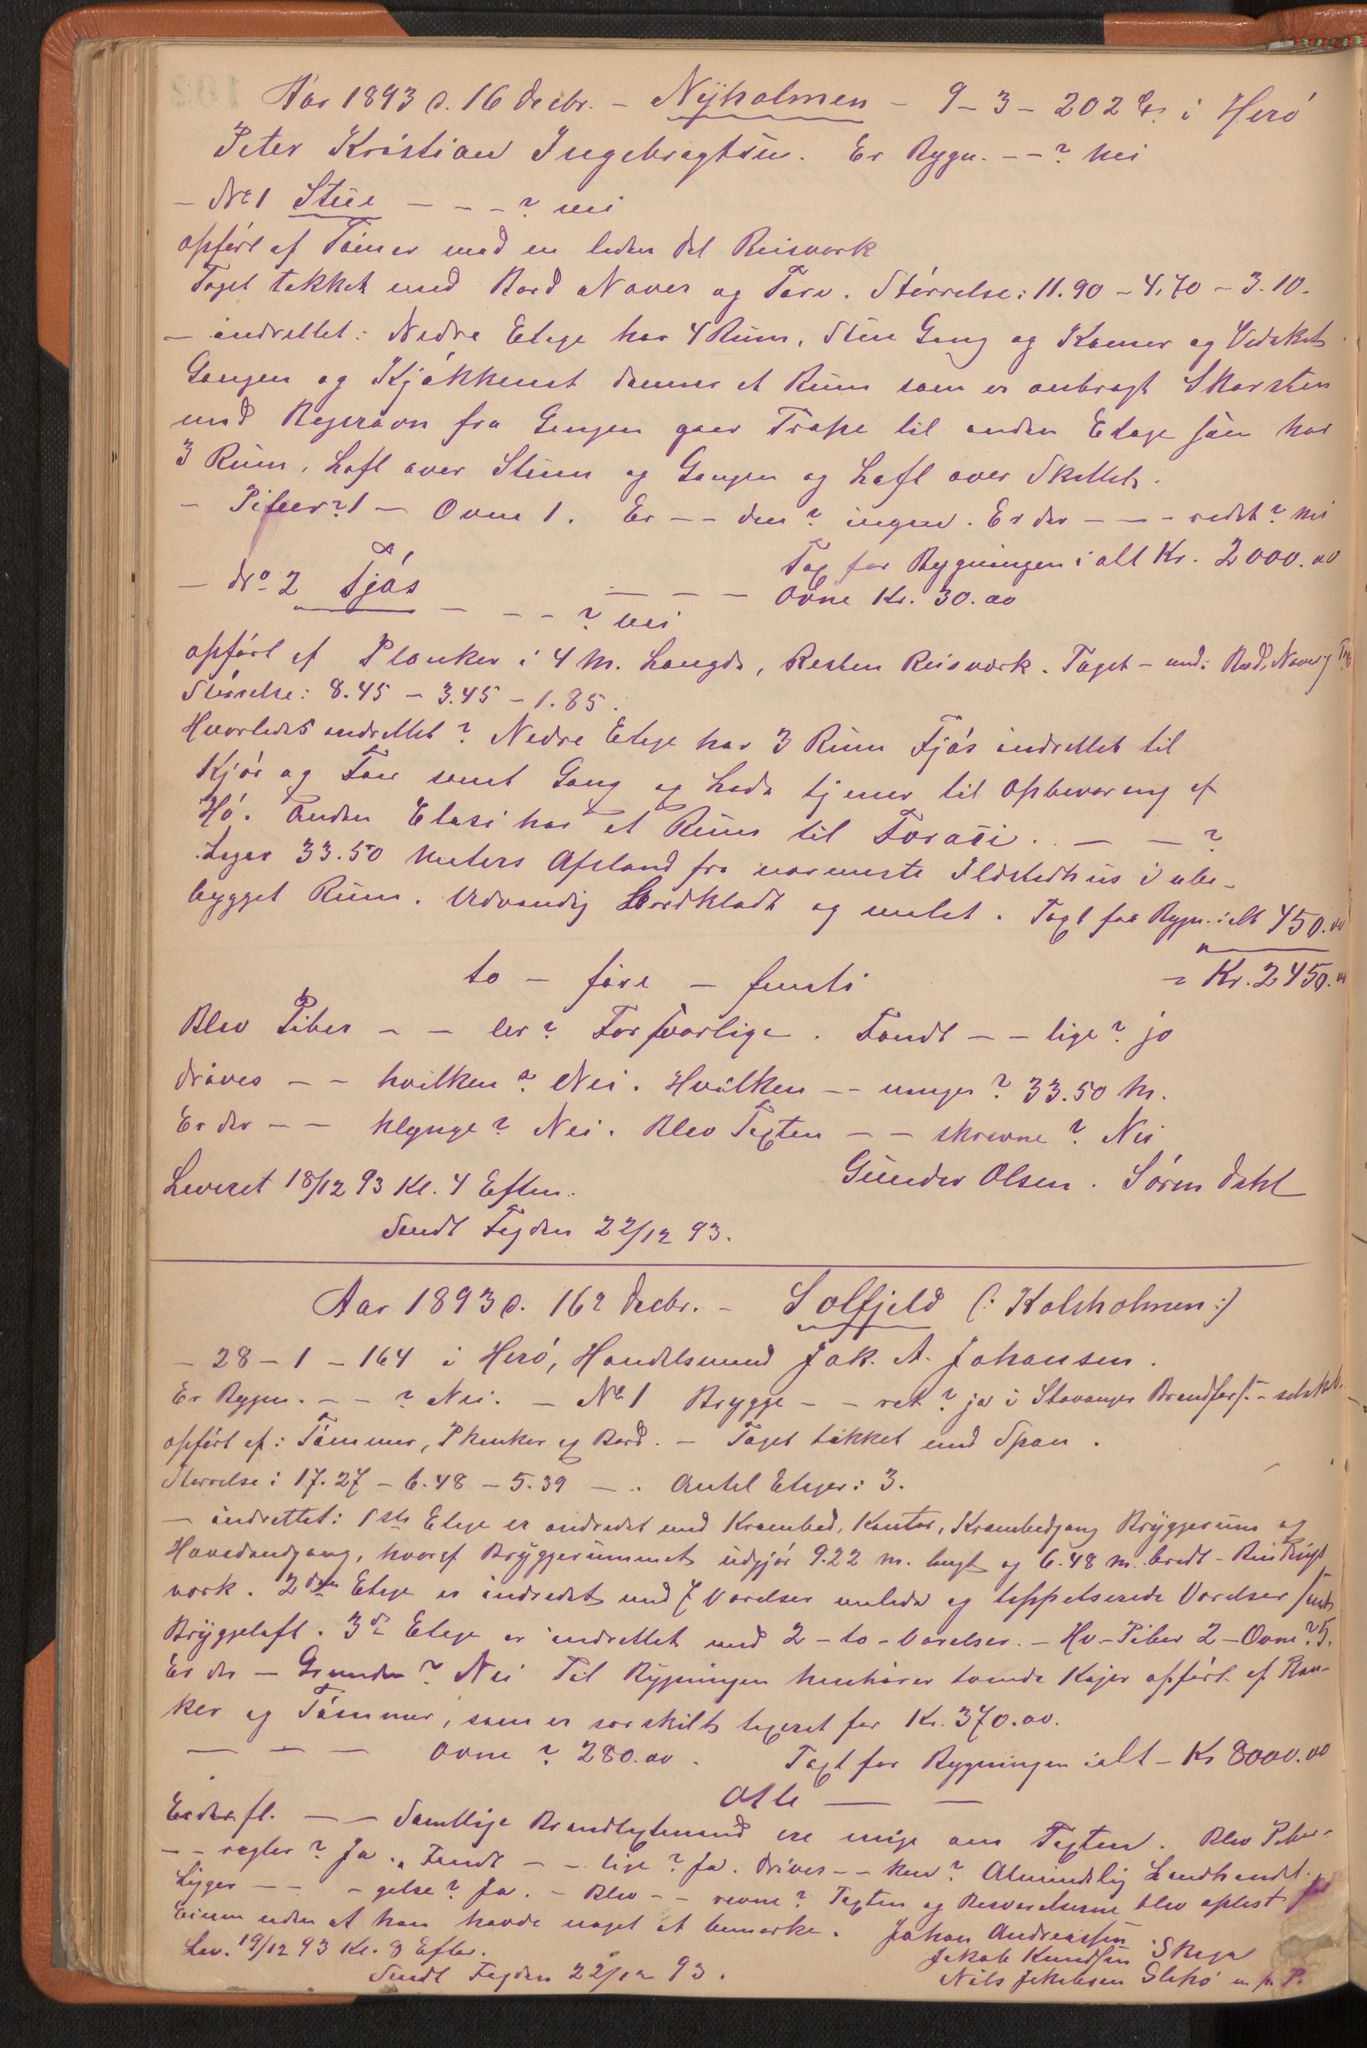 Aar 1893 d. 16 decbr. – Nyholmen – 9 – 3 – 202 i Herö
Peter Kristian Ingebregtsen. Er Bygn. – – ? nei
– No 1 Stue – – – ? nei
opfört af Tömer med en liden del Reisverk
Taget tækket med Bord Næver og Torv. Störrelse: 11.90 – 4.70 – 3.10.
– indrettet: Nedre Etage har 4 Rum, Stue Gang og Kamer og
Gangen og Kjökkenet danner et Rum som er anbragt Skorsten
med Bagerovn fra Gangen gaar Trape til anden Etage som har
3 Rum, Loft over Stuen og Gangen og Loft over Skottet.
– Piber? 1 – Ovne 1. Er – – den? ingen. Er der – – – redet? nei
Tax for Bygningen i alt Kr. 2000.00
– No 2 Fjös – – – Ovne Kr. 30.00
– – – ? nei
opfört af Planker i 4 M. Længde, Resten Reisværk. Taget – med: Bord, Næver og Torv
Störrelse: 8.45 – 3.45 – 1.85.
Hvorledes indrettet? Nedre Etage har 3 Rum Fjös indrettet til
Kjör og Faar samt Gang og Lade tjener til Opbevaring af
Hö. Anden Etasi har et Rum til . – – ?
Ligger 33.50 Meters Afstand fra nærmeste Ildstedhus i ube-
bygget Rum. Udvendig Bordklædt og malet. Taxt for Bygn. ialt 450.00
to – fire – femti = Kr. 2450.00
Blev Piber – – ler? Forsvarlige. Fandt – – lige? jo
drives – – hvilken? Nei. Hvilken – – ninger? 33.50 M.
Er der – – klynge? Nei. Blev Taxten – – skrevne? Nei
Leveret 18/12 93 Kl. 4 Efterm. Gunder Olsen. Sören Dahl
Sendt Fogden 22/12 93.
Aar 1893 d. 16de decbr. – Solfjeld (: Kalsholmen :)
– 28 – 1 – 164 i Herö, Handelsmand Jak. A. Johansen.
Er Bygn. – – ? Nei. – No 1 Brygge – – ret? ja i Stavanger Brandfors. – selskab
opfört af: Tömmer, Planker og Bord. – Taget tækket med Spon.
Störrelse: 17.27 – 6.48 – 5.39 – . Antal Etager: 3.
– indrettet: 1ste Etage er indredet med Krambod, Kontor, Krambodgang Bryggerum og
Hovedindgang, hvoraf Bryggerummet udgjör 9.22 m. langt og 6.48 m. bredt –
værk. 2den Etage er indredet med 7 Værelser malede og tappetserede Værelser samt
Bryggeloft. 3de Etage er indrettet med 2 – to – Værelser. – Hv – Piber 2 – Ovne? 5.
Er der – Grunden? Nei Til Bygningen henhörer tvende Kajer opfört af Plan-
ker og Tömmer, som er særskilt taxeret for Kr. 370.00.
– – – Ovne? 280.00. Taxt for Bygningen ialt – Kr 8000.00
Otte – –
Er der fl. – – Samtlige Brandtaxtmænd ere enige om Taxten. Blev Piber
– – regler? Ja. Fandt – – lige? Ja. Drives – – ken? Almindelig Landhandel.
Ligger – – – gelse? Ja. – Blev – – revne? Taxten og Besvarelserne blev oplæst for
Eieren uden at han havde noget at bemærke. Johan Andreassen Skeja
Lev. 19/12 93 Kl. 8 Efter. Jakob Knudsen
Sendt Fogden 22/12 93. Nils Jakobsen m. p. P.